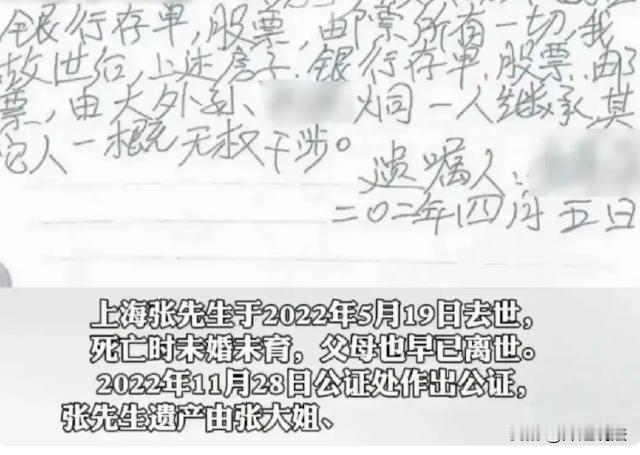 银行存单,股票,邮票所有一切,我
故世后,上述房子、银行存单、股票、邮
票,由大外孙、烔一人继承,其
它人一概无权干涉。
遗嘱人:
二〇二年四月五日
上海张先生于2022年5月19日去世,
死亡时未婚未育,父母也早已离世。
2022年11月28日公证处作出公证,
张先生遗产由张大姐、